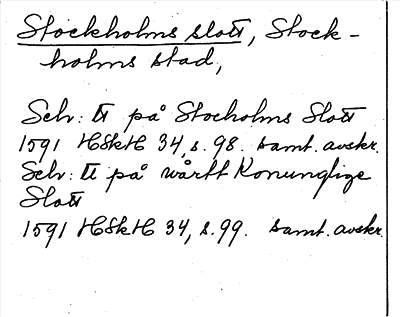 Stockholms slott, Stock-
holms stad,
Schr: tt på Stocholms Slott
1591 HSkH 34, s. 98. samt. avskr.
Schr: tt på wårtt Konunglige
Slott
1591 HSkH 34, s. 99. samt. avskr.